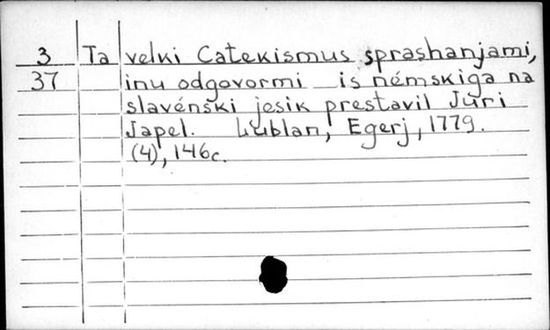 3 Ta velki Catekismus sprashanjami,
37 inu odgovormi is némskiga na
slavénski jesik prestavil Juri
Japel. Lublan, Egerj, 1779.
(4), 146c.